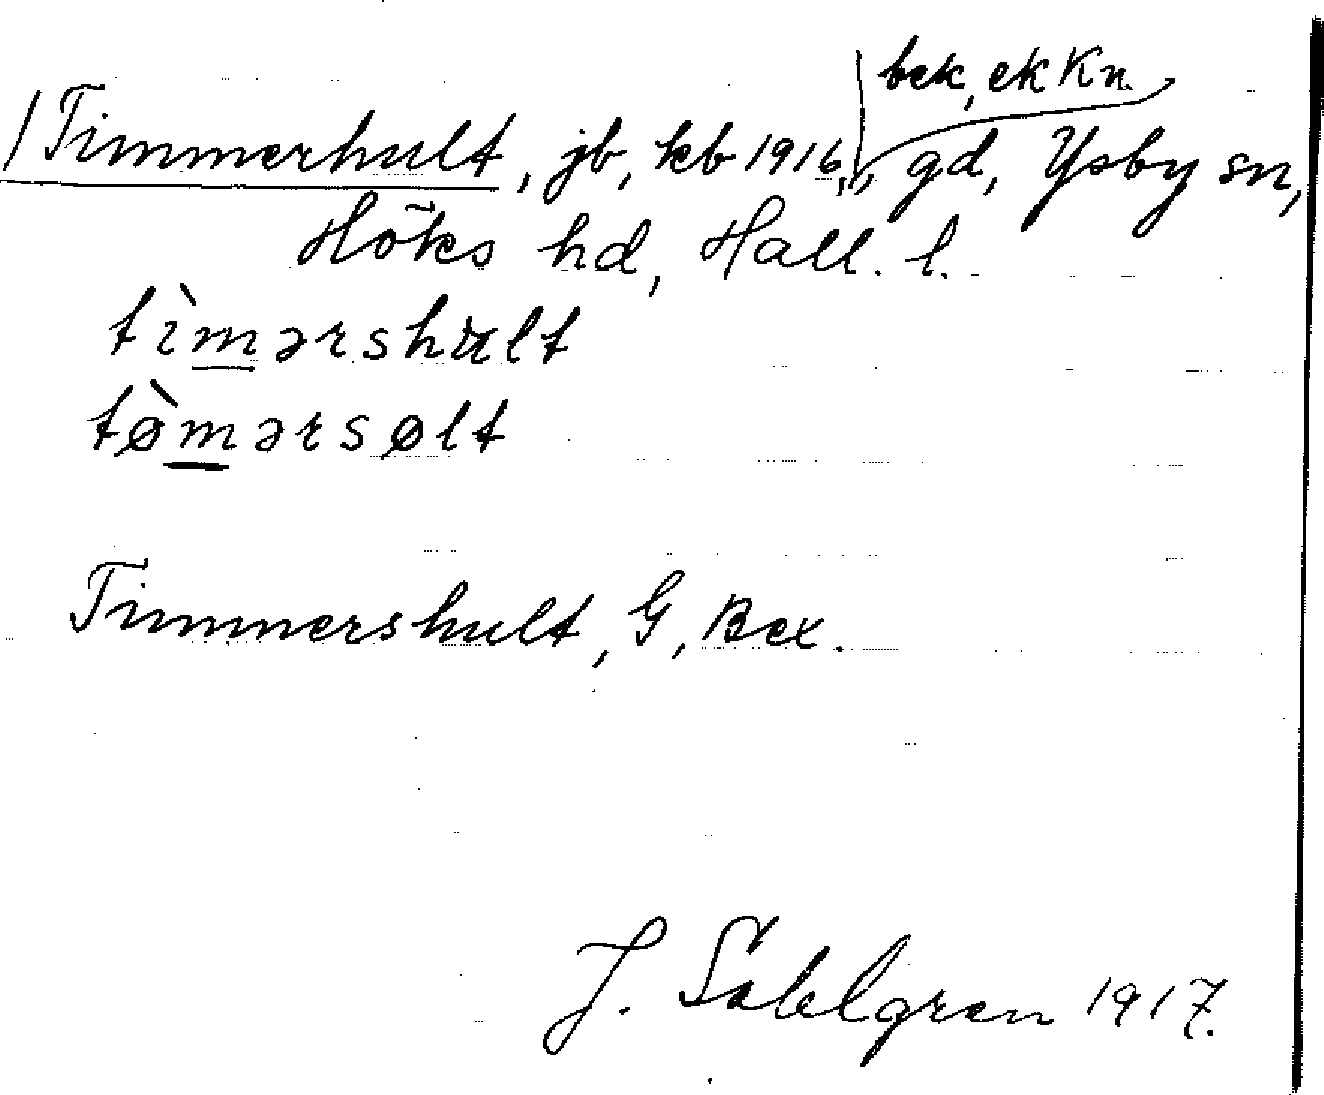 bek, ek Kn.
/Timmerhult, jb, kb 1916, gd, Ysby sn,
Höks hd, Hall. l.
tìmərshult
tø̀mərsølt
Timmershult, G, Bex.
J. Sahlgren 1917.